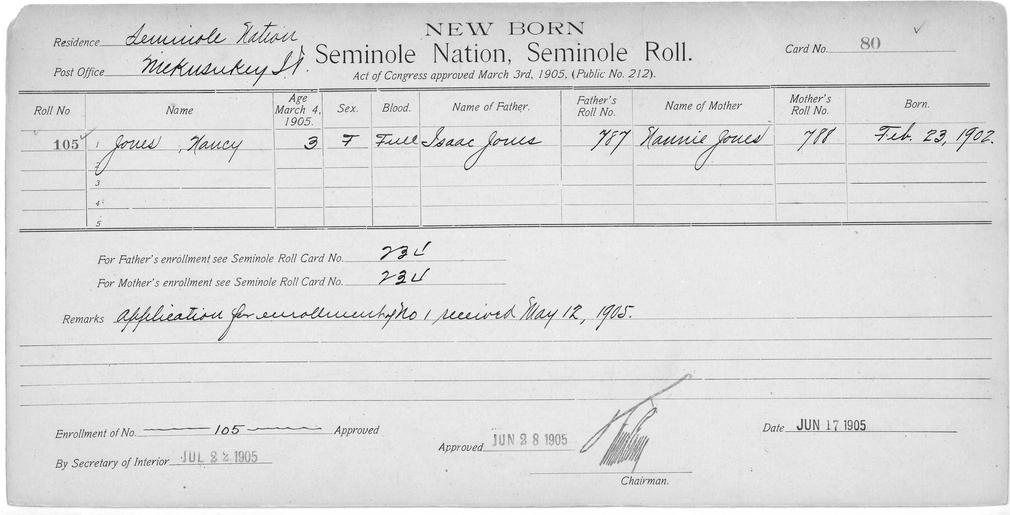 NEW BORN
Residence Seminole Nation
Seminole Nation, Seminole Roll.
Card No. 80
Post Office Mekusukey I.T.
Act of Congress approved March 3rd, 1905, (Public No. 212).
Roll No Name Age March 4, 1905. Sex. Blood. Name of Father. Father's Roll No. Name of Mother Mother's Roll No. Born.
105 1 Jones, Nancy 3 F Full Isaac Jones 787 Nannie Jones 788 Feb. 23, 1902.
2
3
4
5
For Father's enrollment see Seminole Roll Card No. 234
For Mother's enrollment see Seminole Roll Card No. 234
Remarks Application for enrollment of No 1 received May 12, 1905.
Enrollment of No. 105 Approved
Approved JUN 28 1905
Date JUN 17 1905
By Secretary of Interior JUL 22 1905
Chairman.